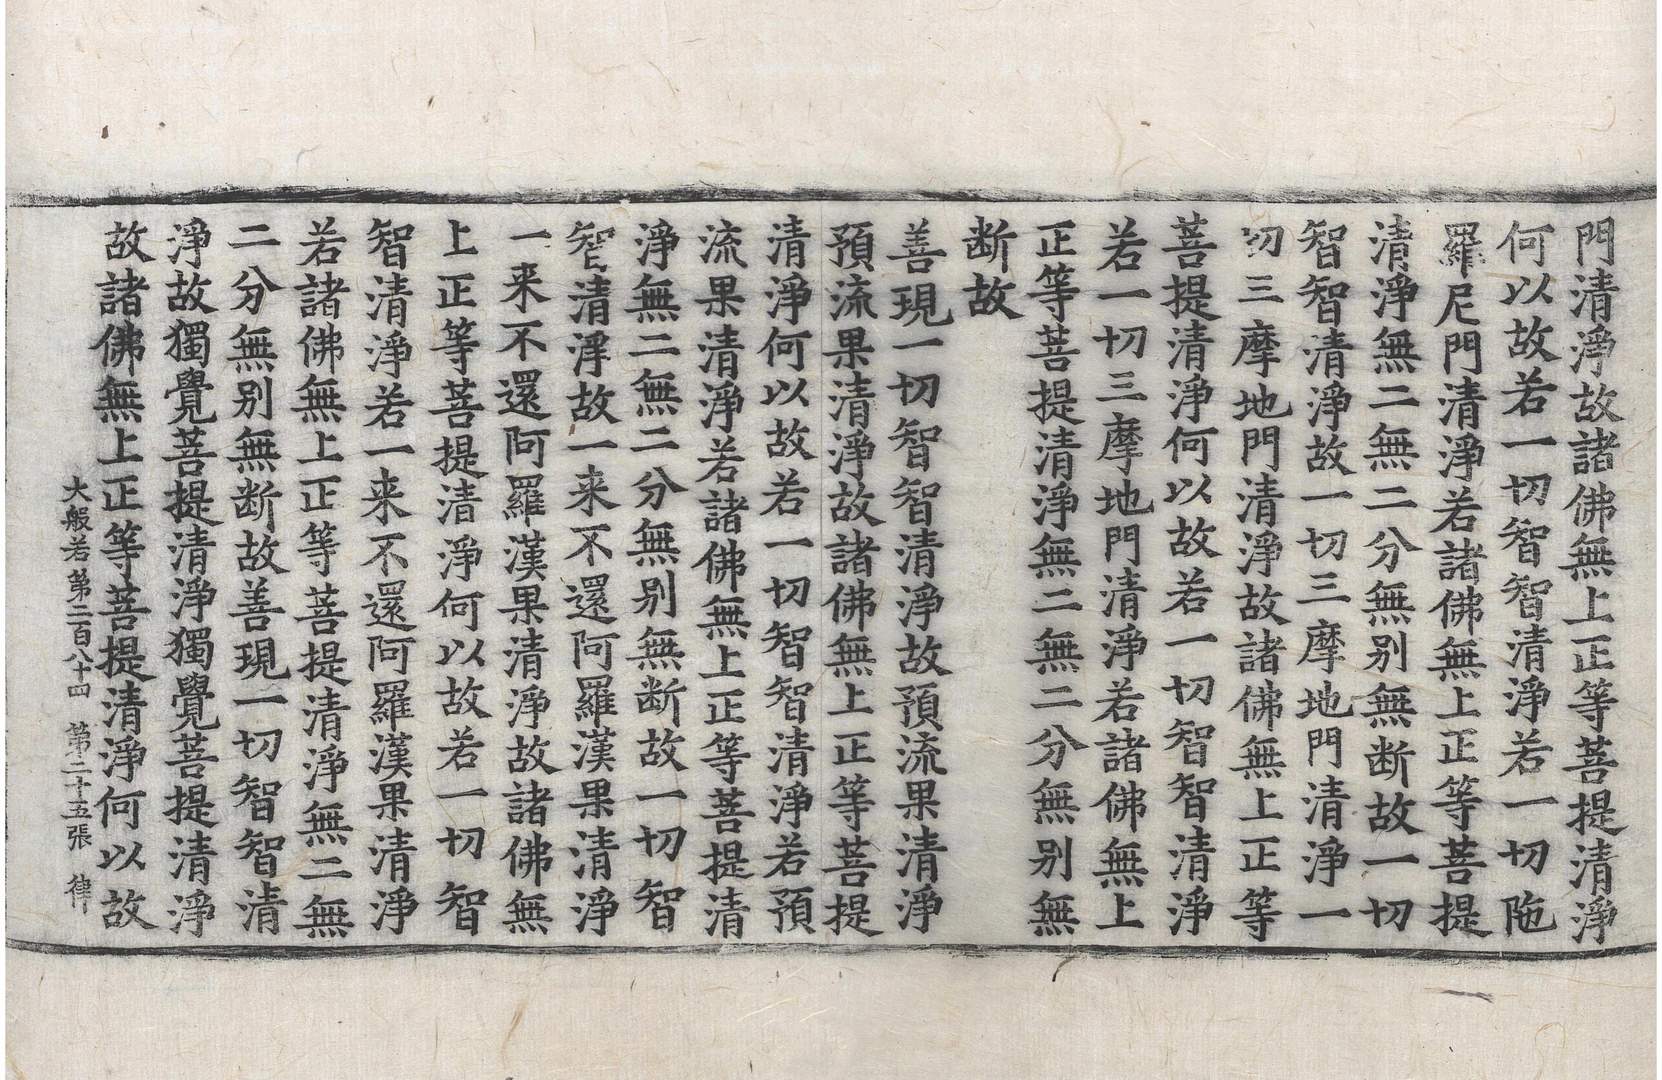 門清淨故諸佛無上正等菩提清淨
何以故若一切智智清淨若一切陁
羅尼門清淨若諸佛無上正等菩提
清淨無二無二分無别無断故一切
智智清淨故一切三摩地門清淨一
切三摩地門清淨故諸佛無上正等
菩提清淨何以故若一切智智清淨
若一切三摩地門清淨若諸佛無上
正等菩提清淨無二無二分無别無
断故
善現一切智智清淨故預流果清淨
預流果清淨故諸佛無上正等菩提
清淨何以故若一切智智清淨若預
流果清淨若諸佛無上正等菩提清
淨無二無二分無别無断故一切智
智清淨故一来不還阿羅漢果清淨
一来不還阿羅漢果清淨故諸佛無
上正等菩提清淨何以故若一切智
智清淨若一来不還阿羅漢果清淨
若諸佛無上正等菩提清淨無二無
二分無别無断故善現一切智智清
淨故獨覺菩提清淨獨覺菩提清淨
故諸佛無上正等菩提清淨何以故
大般若第二百八十四 第二十五張 律